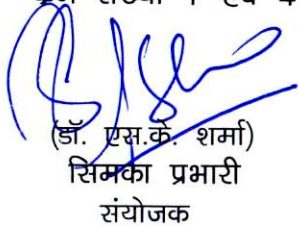 (डॉ. एस.के. शर्मा)
सिमका प्रभारी
संयोजक